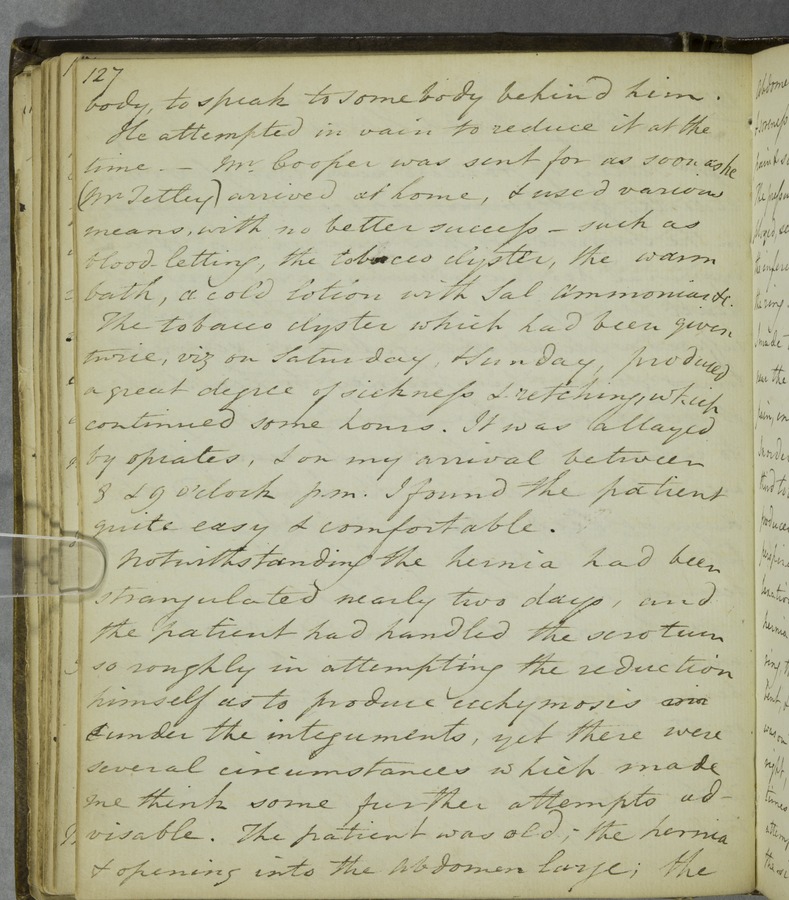 127
body, to speak to somebody behind him.
He attempted in vain to reduce it at the
time. – Mr. Cooper was sent for as soon as he
(Mr Tetley) arrived at home, & used various
means, with no better success – such as
blood-letting, the tobacco clyster, the warm
bath, a cold lotion with Sal Ammoniac &c.
The tobacco clyster which had been given
twice, viz on Saturday, & Sunday, produced
a great degree of sickness & retching, which
continued some hours. It was allayed
by opiates, & on my arrival between
8 & 9 o'clock pm. I found the patient
quite easy & comfortable.
Notwithstanding the hernia had been
strangulated nearly two days, and
the patient had handled the scrotum
so roughly in attempting the reduction
himself as to produce ecchymosis
under the integuments, yet there were
several circumstances which made
me think some further attempts ad-
visable. The patient was old; the hernia
& opening into the abdomen large; the